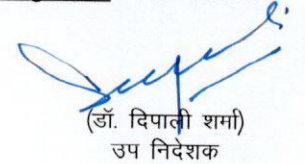 (डॉ. दिपाली शर्मा)
उप निदेशक